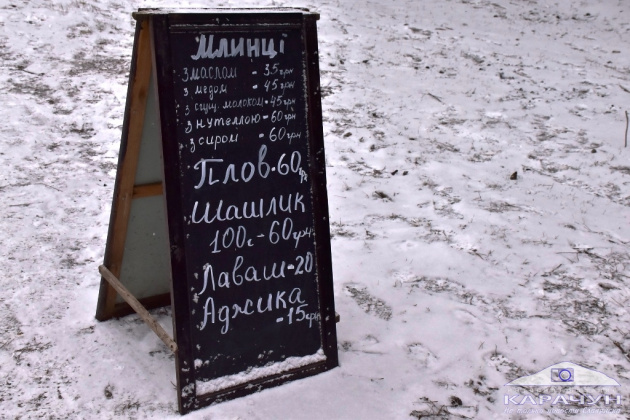 Млинці
з маслом - 35 грн
з медом - 45 грн
з сгущ. молоком - 45 грн
з нутеллою - 60 грн
з сиром - 60 грн
Плов - 60 грн
Шашлик
100г - 60 грн
Лаваш - 20
Аджика
- 15 грн
КАРАЧУН